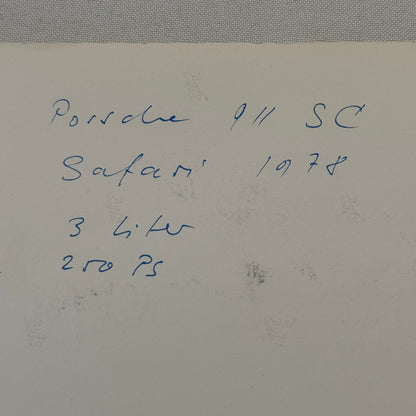 Porsche 911 SC
Safari 1978
3 Liter
250 PS